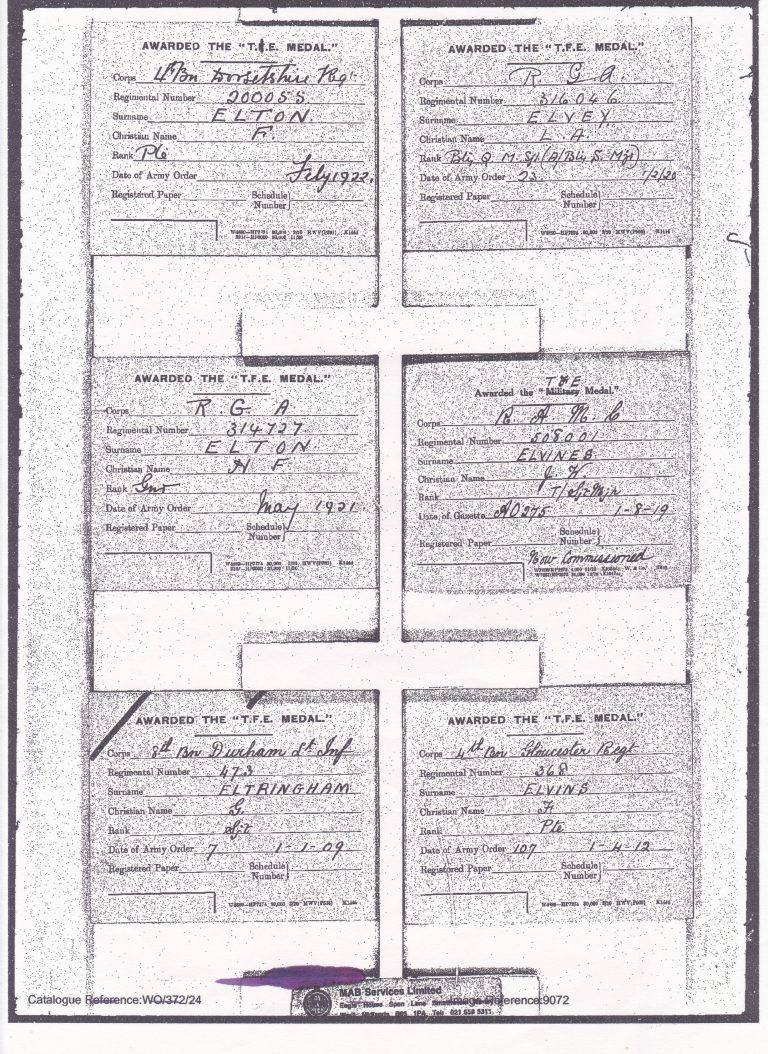 AWARDED THE "T.F.E. MEDAL."
Corps 4th Bn Dorsetshire Regt
Regimental Number 200055
Surname ELTON.
Christian Name F.
Rank Pte
Date of Army Order July 1922.
Registered Paper Schedule Number
AWARDED THE "T.F.E. MEDAL."
Corps R G A.
Regimental Number 316046.
Surname ELVEY
Christian Name L. A
Rank Bty Q. M. Sjt (A/Bty S. Mjr)
Date of Army Order 23 1/2/20
Registered Paper Schedule Number
AWARDED THE "T.F.E. MEDAL."
Corps R. G. A
Regimental Number 314727.
Surname ELTON.
Christian Name H F.
Rank Gnr
Date of Army Order May 1921
Registered Paper Schedule Number
T F E
Awarded the "Military Medal."
Corps R A M C
Regimental Number 508001
Surname ELVINES
Christian Name J.
Rank T/Sjt Mjr
Date of Gazette AO 275 1-8-19
Registered Paper Schedule Number
Now Commissioned
AWARDED THE "T.F.E. MEDAL."
Corps 8th Bn Durham Lt Inf
Regimental Number 473
Surname ELTRINGHAM
Christian Name G.
Rank Sjt
Date of Army Order 7 1-1-09
Registered Paper Schedule Number
AWARDED THE "T.F.E. MEDAL."
Corps 4th Bn Gloucester Regt
Regimental Number 368
Surname ELVINS
Christian Name F.
Rank Pte
Date of Army Order 107 1-4-12
Registered Paper Schedule Number
MAB Services Limited
Catalogue Reference:WO/372/24 Reference:9072